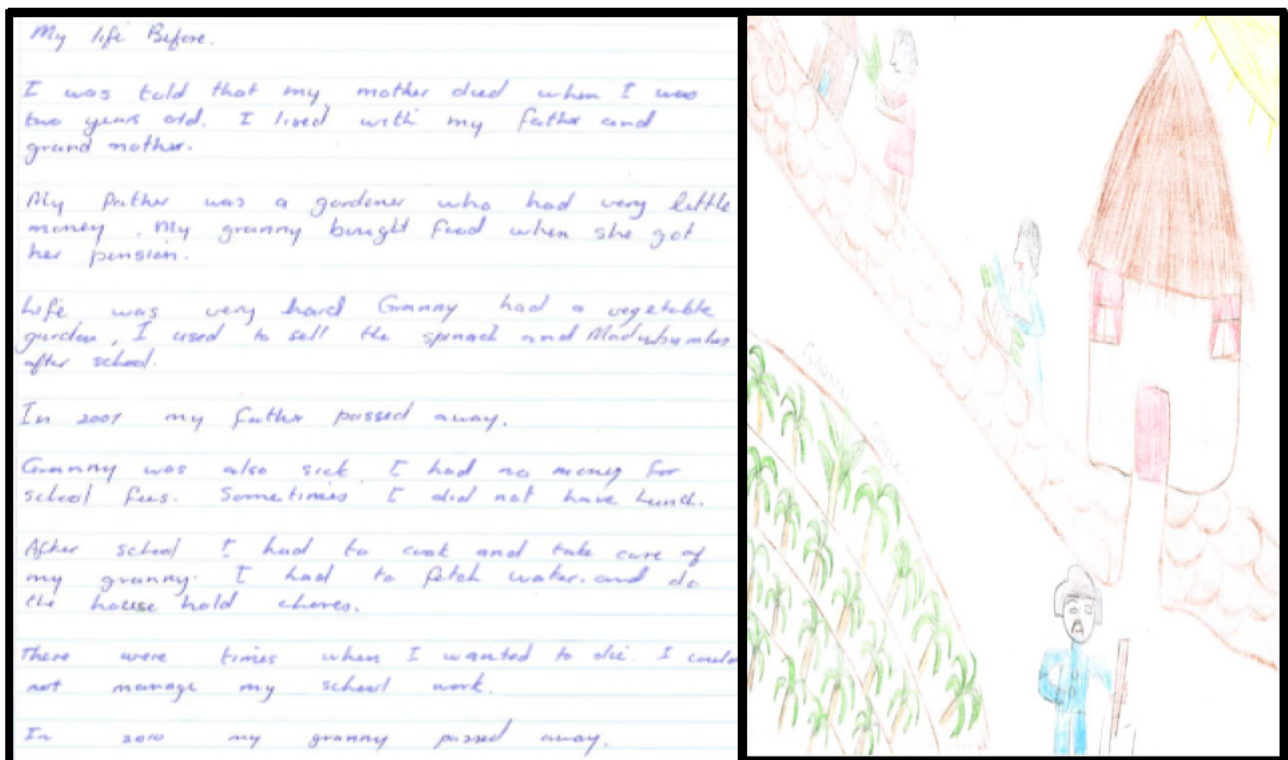 My life Before.
I was told that my mother died when I was
two years old. I lived with my father and
grand mother.
My father was a gardener who had very little
money. My granny bought food when she got
her pension.
Life was very hard Granny had a vegetable
garden, I used to sell the spinach and Madubumbes
after school.
In 2007 my father passed away.
Granny was also sick. I had no money for
school fees. Sometimes I did not have lunch.
After school I had to cook and take care of
my granny. I had to fetch water. and do
the house hold chores.
There were times when I wanted to die. I could
not manage my school work.
In 2010 my granny passed away.